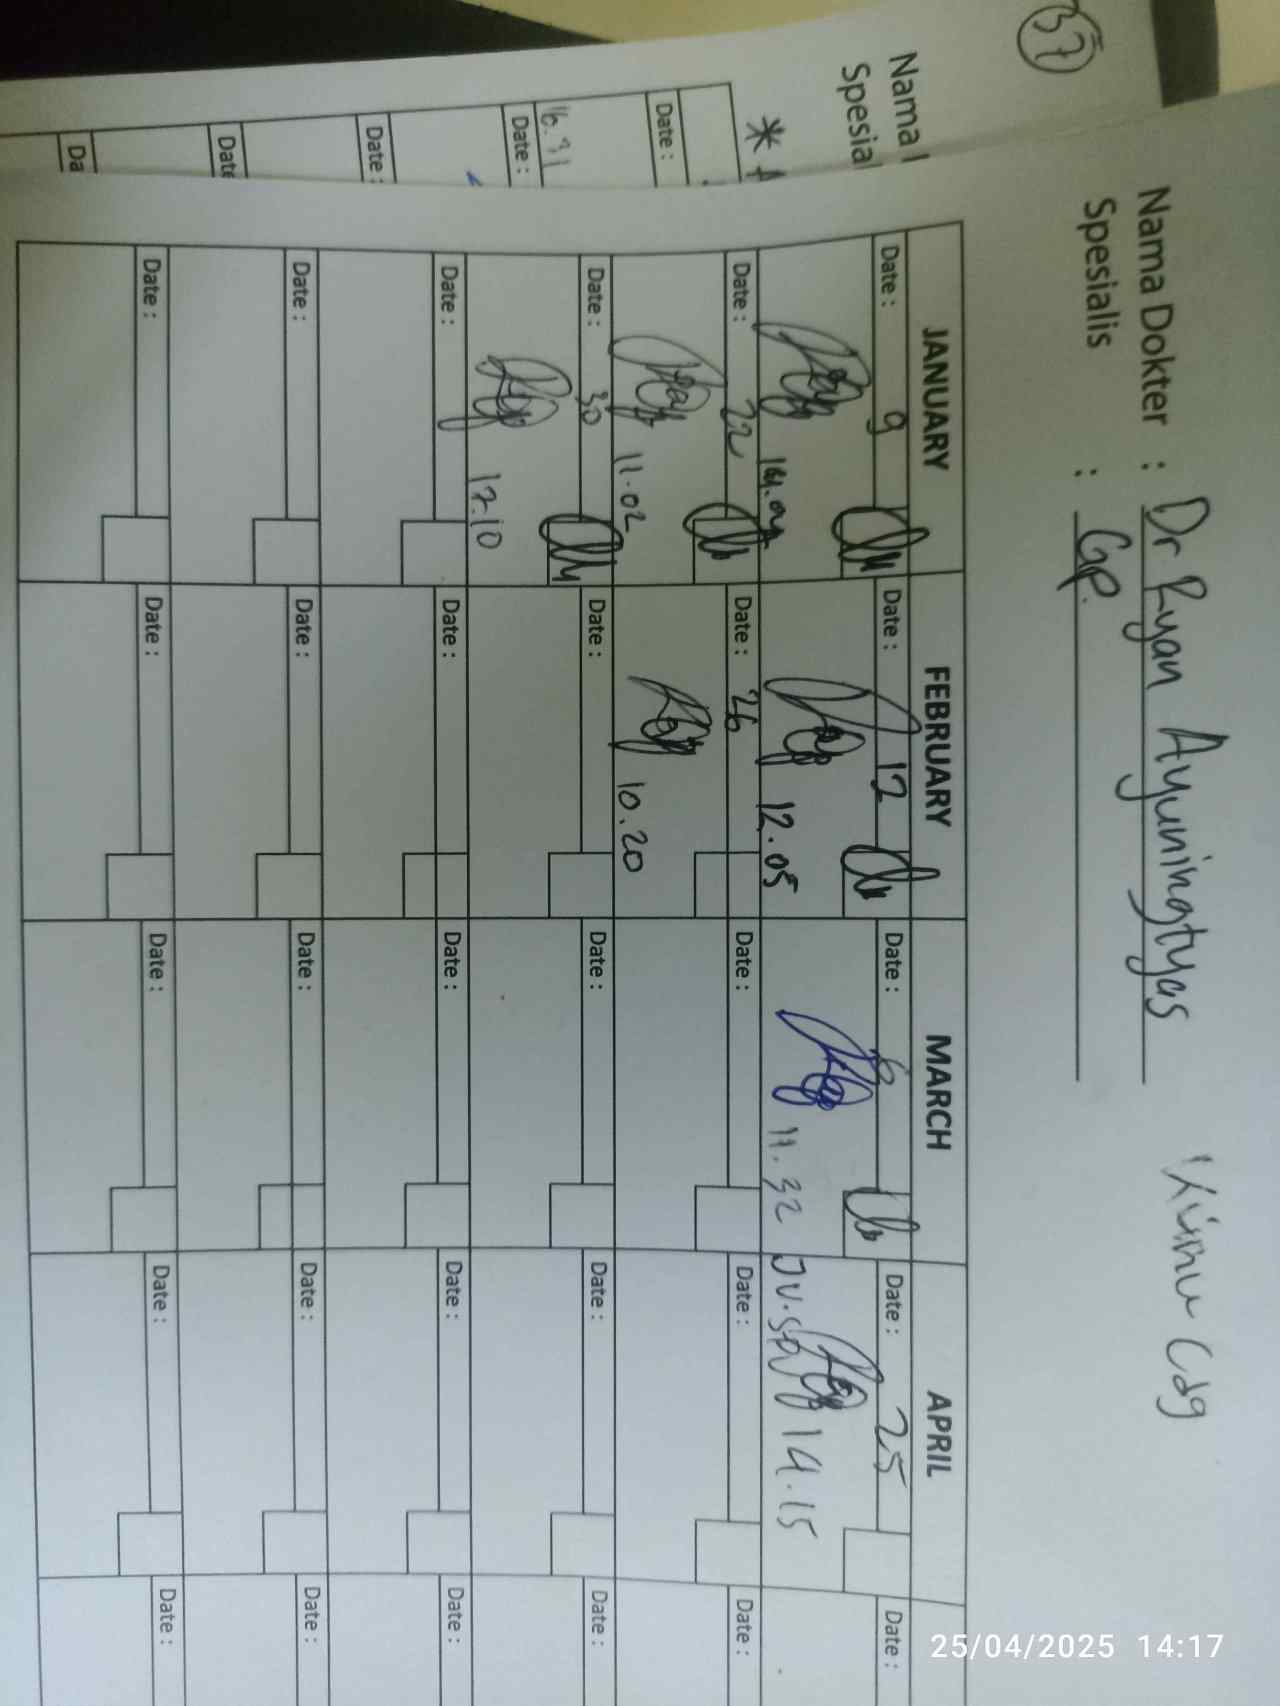 37
Nama
Spesial
Date :
16.31
Date :
Date :
Date
Da
Nama Dokter : Dr Ryan Ayuningtyas
Spesialis : GP.
JANUARY FEBRUARY MARCH APRIL
Date : 9 Date : 12 Date : 6 Date : 25 Date :
12.05 11.32 14.15
Date : 22 Date : 26 Date : Date : Date :
11.02 10.20
Date : 30 Date : Date : Date : Date :
17.10
Date : Date : Date : Date : Date :
Date : Date : Date : Date : Date :
Date : Date : Date : Date : Date :
25/04/2025 14:17